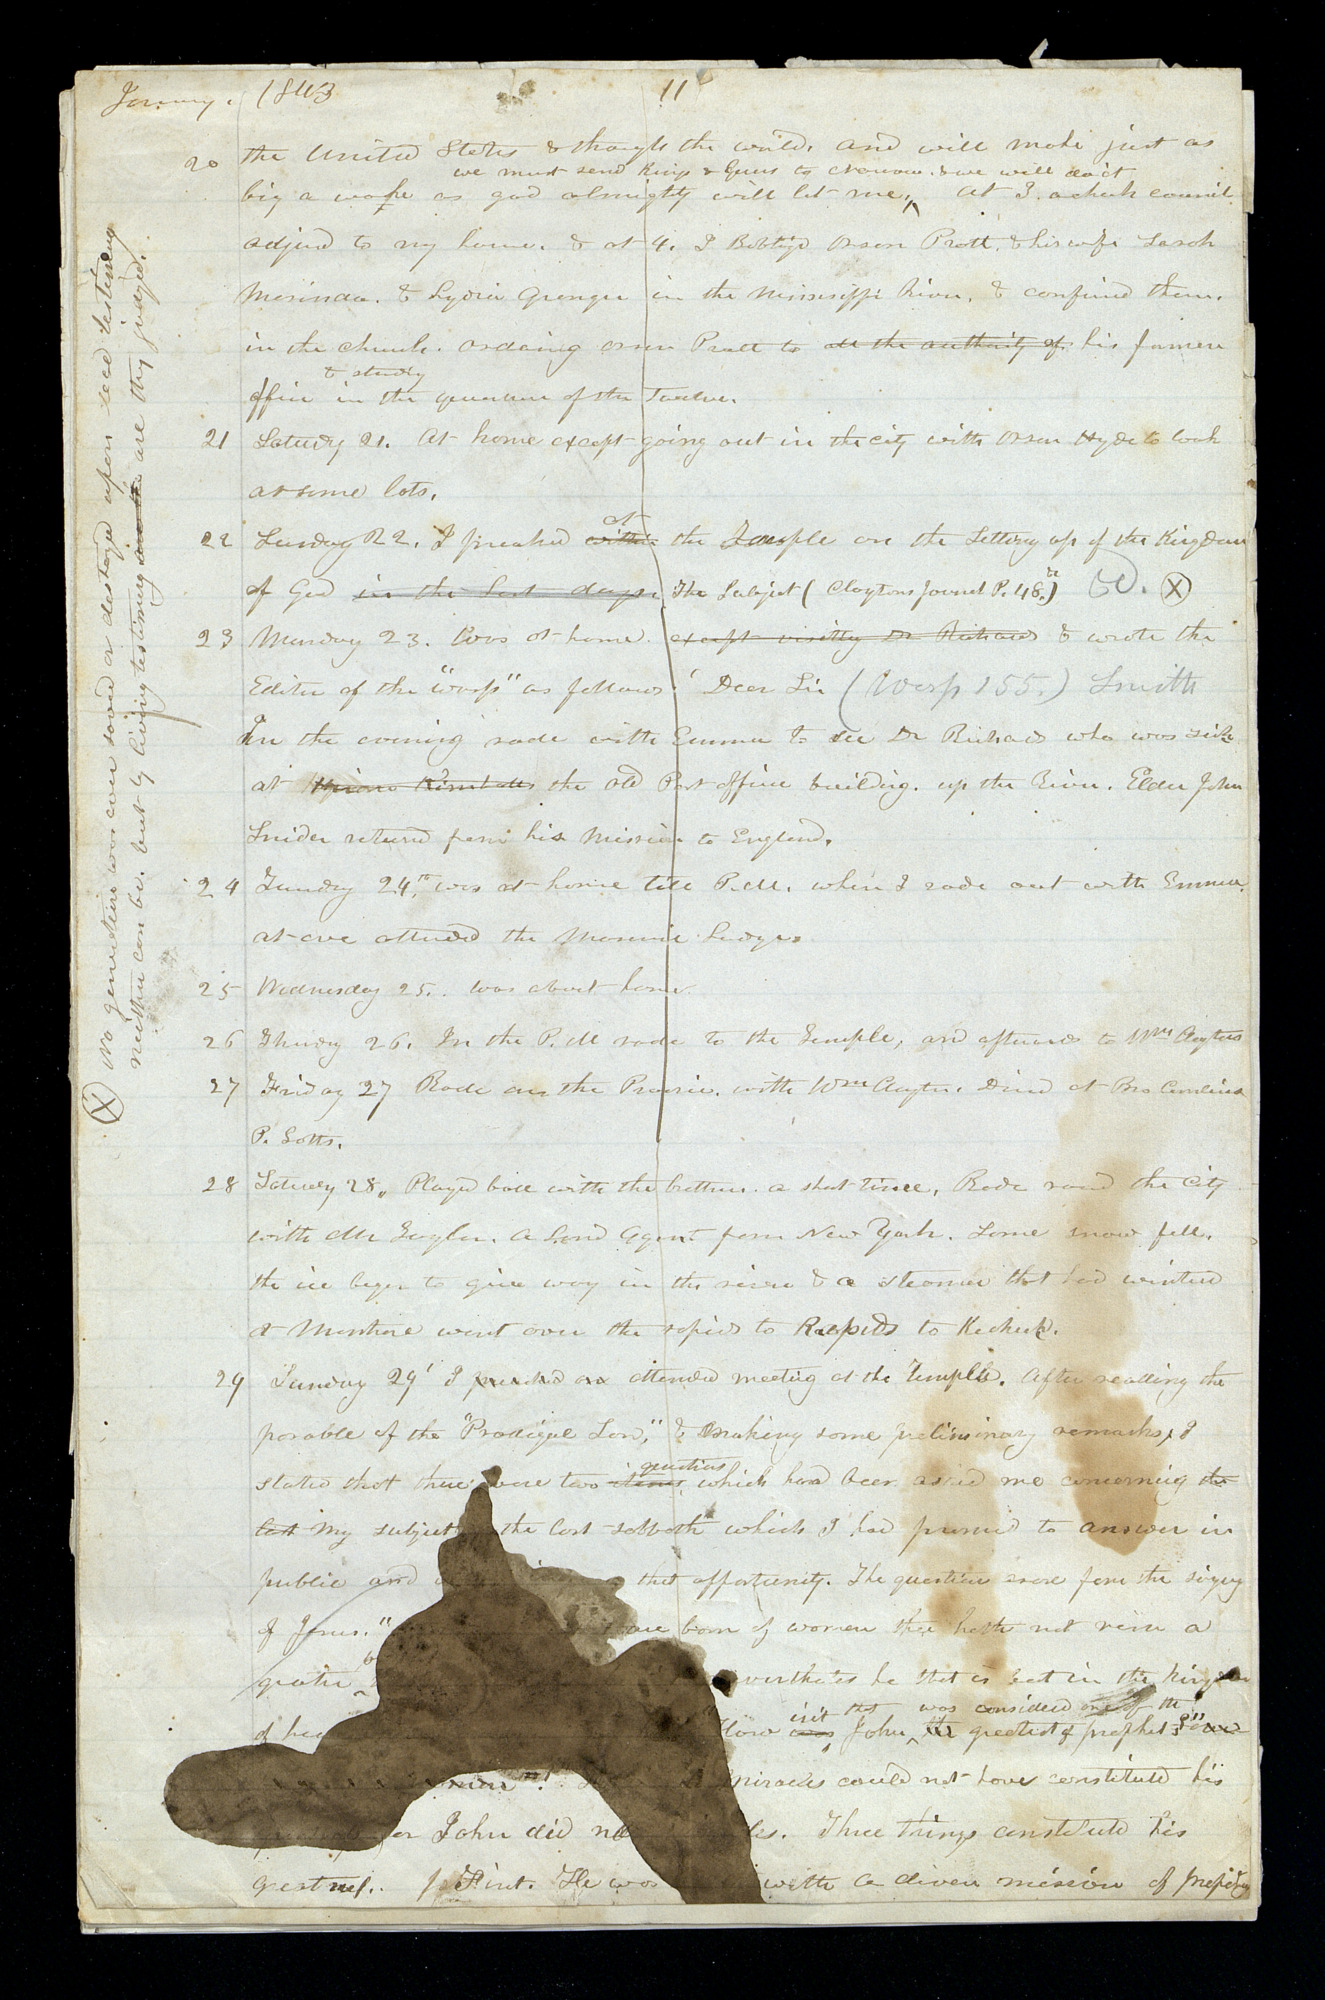 January. 1843
11
20 the United States & through the world. and will make just as
we must send Kings & Govrs to Nauvoo. & we will do it
big a wake as god almighty will let me, ^ At 3. a church council
adjnd to my house. & at 4. I Bobtizd Orson Pratt. & his wife Sarah
Marinda. & Lydia Granger in the Mississippi River, & confirmd them.
in the church. ordaing Orson Pratt to all the authority of his former
& study
office in the quorum of the Twelve.
21 Saturdy 21. At home except going out in the city with Orson Hyde to look
at some lots.
at
22 Sunday 22. I preached within the Temple on the Setting up of the Kingdom
of God in the last days. The Subject (Claytons Journal P. 48.)
23 Munday 23. Was at home. except visiting Dr Richards & wrote the
Editor of the "Wasp" as follows! Dear Sir (Wasp 155.) Smith
In the evening rode with Emma to see Dr Richards who was sick
at Hiram Kimballs the old Post office building. up the River. Elder John
Snider returnd from his Mission to England.
24 Tuesday 24.th was at home till P.M. when I rode out with Emma.
at eve attended the Masonic Lodge.
25 Wednesday 25. was about home.
26 Thursdy 26. In the P.M rode to the Temple, and afterwards to Wm Claytons
27 Friday 27 Rode on the Prarie. with Wm Clayton. Dined at Bro Cornelius
P. Lotts.
28 Saturdy 28, Played ball with the brethren. a short time, Rode round the City
with Mr Taylor. a Land Agent from New York. Some snow fell.
the ice began to give way in the river & a steamer that had wintered
at Montrose went over the rapids to Rapids to Keokuk.
29 Sunday 29' I preached and attended meeting at the Temple. After reading the
parable of the "Prodigal Son," & making some preliminary remarks, I
questions
stated that there were two items, which had been asked me concerning the
last my subject the last sabbath which I had promised to answer in
public and that opportunity. The question arose from the sayng
of Jesus. " are born of women ther hath not risen a
greater nevertheless he that is least in the kingdom
isit that was considerd one of the
of hea How was John, the greatest of prophets?"
miracles could not have constituted his
for John did no . Three things constituted his
greatness. First. He was with a divine mission of prepairg
(X) No generation was ever saved or destroyed upon dead testimony
neither can be. but by living testimony are they judged.